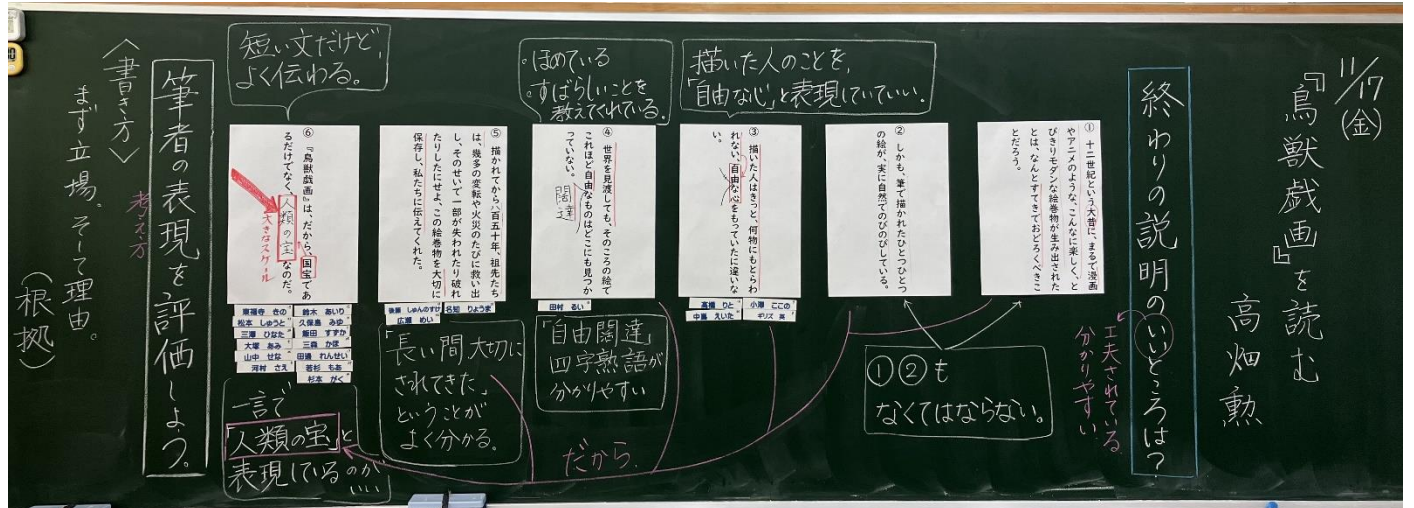 11/17
(金)
『鳥獣戯画』を読む
高畑勲
終わりの説明のいいところは?
工夫されている
分かりやすい
① 十二世紀という大昔に、まるで漫画
やアニメのような、こんなに楽しく、と
びきりモダンな絵巻物が生み出された
とは、なんとすてきでおどろくべきこ
とだろう。
② しかも、筆で描かれたひとつひとつ
の絵が、実に自然でのびのびしている。
①②も
なくてはならない。
描いた人のことを、
「自由な心」と表現していていい。
③ 描いた人はきっと、何物にもとらわ
れない、自由な心をもっていたに違いな
い。
小澤 ここの
高橋 りと
中嶌 えいた
ギリズ 英
・ほめている
・すばらしいことを
教えてくれている。
④ 世界を見渡しても、そのころの絵で
これほど自由なものはどこにも見つか
っていない。
闊達
田村 るい
「自由闊達」
四字熟語が
分かりやすい
⑤ 描かれてから八百五十年、祖先たち
は、幾多の変転や火災のたびに救い出
し、そのせいで一部が失われたり破れ
たりしたにせよ、この絵巻物を大切に
保存し、私たちに伝えてくれた。
名知 りょうま
後藤 しゅんのすけ
広瀬 めい
「長い間大切に
されてきた」
ということが
よく分かる。
だから
短い文だけど、
よく伝わる。
⑥ 『鳥獣戯画』は、だから、国宝であ
るだけでなく、人類の宝なのだ。
大きなスケール
鈴木 あいり
東福寺 きの
久保島 みゆ
松本 しゅうと
飯田 すずか
三澤 ひなた
三森 かほ
大塚 あみ
田邉 れんせい
山中 せな
若杉 もあ
河村 さえ
杉本 がく
一言で
「人類の宝」と
表現しているのが
いい
筆者の表現を評価しよう。
考え方
〈書き方〉
まず立場。そして理由。
(根拠)